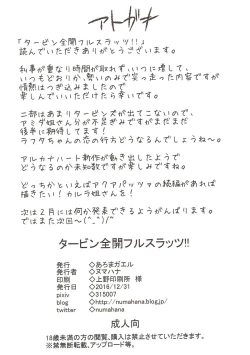 アトガキ
「タービン全開フルスラッツ!!」
読んでいただきありがとうございます。
私事が重なり時間が取れず、いつに増して、
いつもどおりか、勢いのみで突っ走った内容ですが
情熱はつぎ込みましたので
楽しんでいいただけたら幸いです。
二部はあまりタービンズが出てこないので、
アミダ姐さん分が不足ぎみですがまだまだ
後半に期待してます！
ラフタちゃんの恋の行方どうなるんでしょうね〜。
アルカナハート新作が動き出したようで
どうなるのか未知数ですが楽しみですね。
どっちかといえばアクアパッツァの続編があれば
描きたい！カルラ姐さんを！
次は2月には何か発表できるようがんばります。
ではまた次回〜(^_^)/~
タービン全開フルスラッツ!!
発行 ◇あろまガエル
発行者 ◇ヌマハナ
印刷 ◇上野印刷所 様
発行日 ◇2016/12/31
pixiv ◇315007
blog ◇http://numahana.blog.jp/
twitter ◇numahana
成人向
18歳未満の方の閲覧、購入は禁止させていただきます。
※禁無断転載、アップロード等。